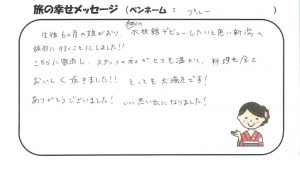 旅の幸せメッセージ (ペンネーム : ブルー )
生後6ヵ月の孫がおり、水族館デビューしたいと思い新潟へ
旅行に行くことにしました!!
こちらに宿泊し、スタッフの方がとても温かく、料理も全て
おいしく頂きました!! とっても大満足です!
ありがとうございました! いい思い出になりました!